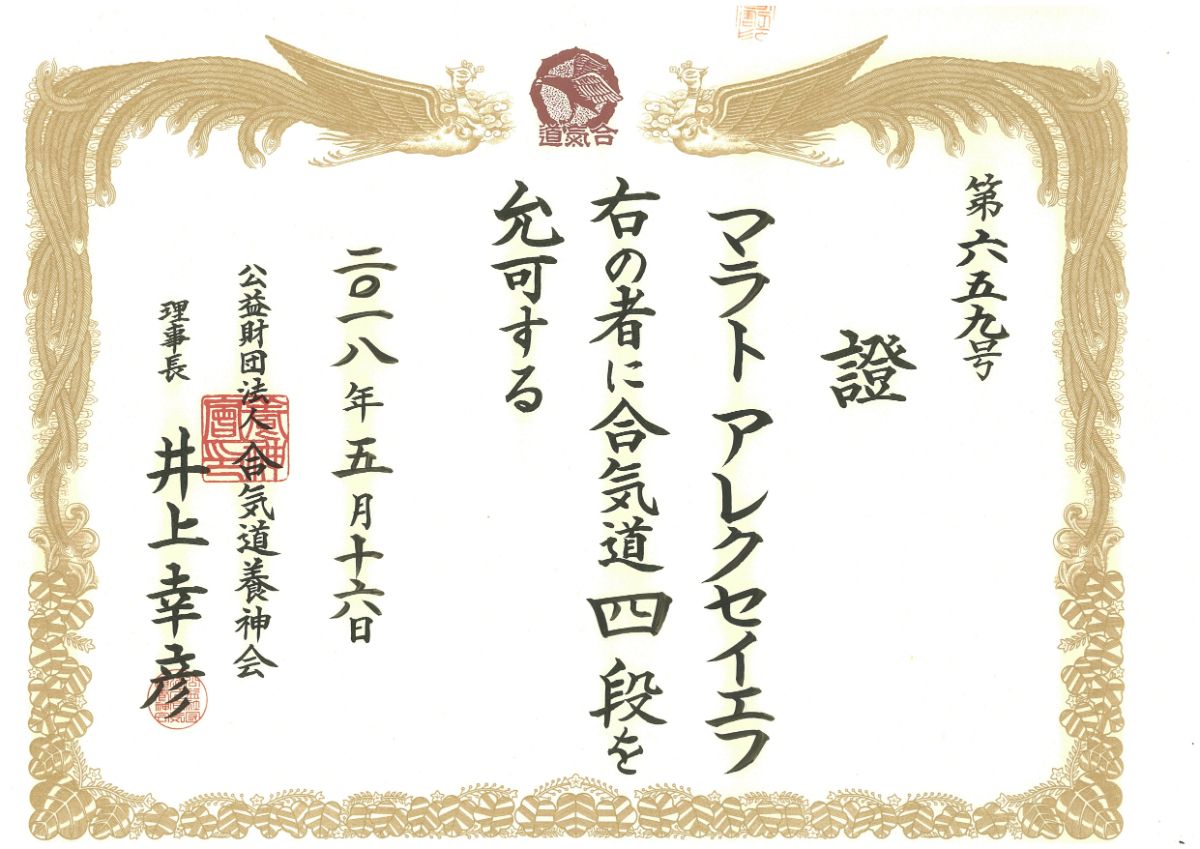 道氣合
第六五九号
證
マラト アレクセイエフ
右の者に合気道四段を
允可する
二〇一八年五月十六日
公益財団法人合気道養神会
理事長 井上幸彦